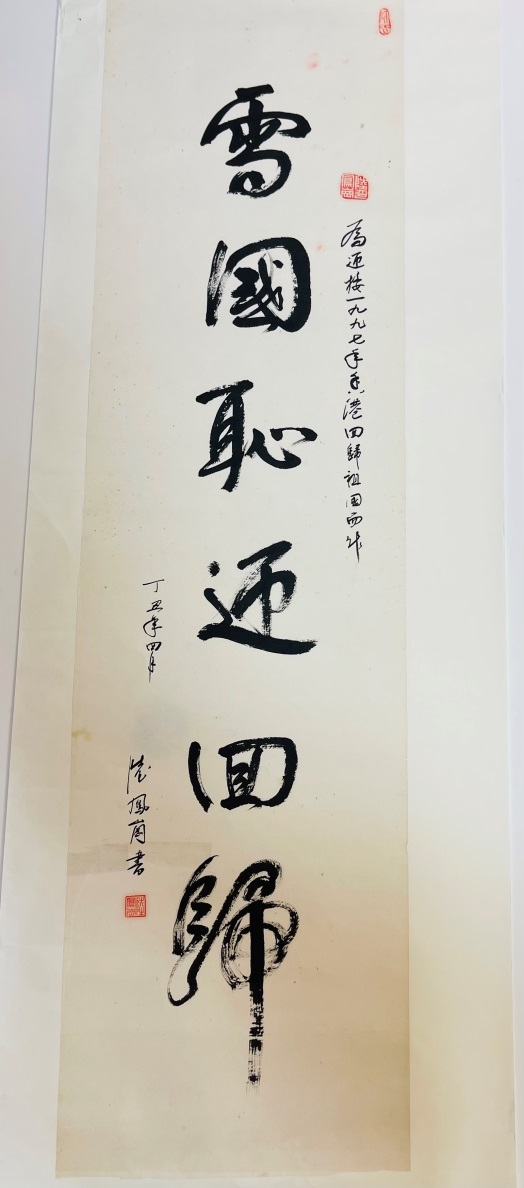 為迎接一九九七年香港回歸祖国而作
雪國恥迎回歸
丁丑年四月
陸鳳崗書